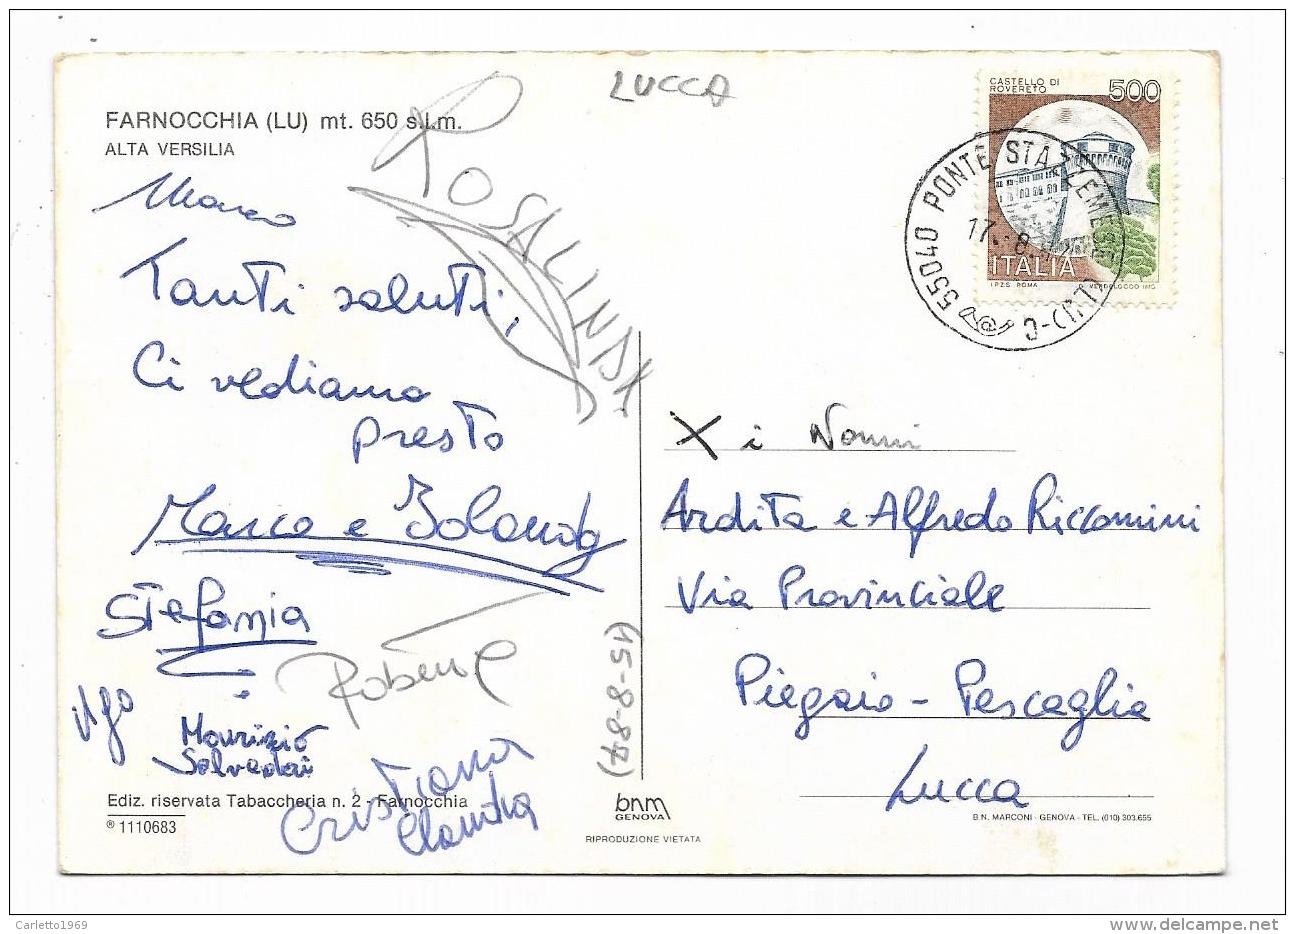 LUCCA
FARNOCCHIA (LU) mt. 650 s.l.m.
ALTA VERSILIA
ROSALINDA
Marco
Tanti saluti,
Ci vediamo
presto
Marco e Iolanda
Stefania
Roberto
Ugo
Maurizio
Salvadori
Cristiana
Claudia
(15-8-87)
Ediz. riservata Tabaccheria n. 2 - Farnocchia
® 1110683
bnm
GENOVA
RIPRODUZIONE VIETATA
CASTELLO DI
ROVERETO
500
ITALIA
I.P.Z.S. ROMA
D. VERDELOCCO INC.
55040 PONTE STAZZEMESE (LU)-C
17.-8.
X i Nonni
Ardita e Alfredo Riccomini
Via Provinciale
Piegaio - Pescaglia
Lucca
B.N. MARCONI - GENOVA - TEL. (010) 303.655
Carletto1969
www.delcampe.net